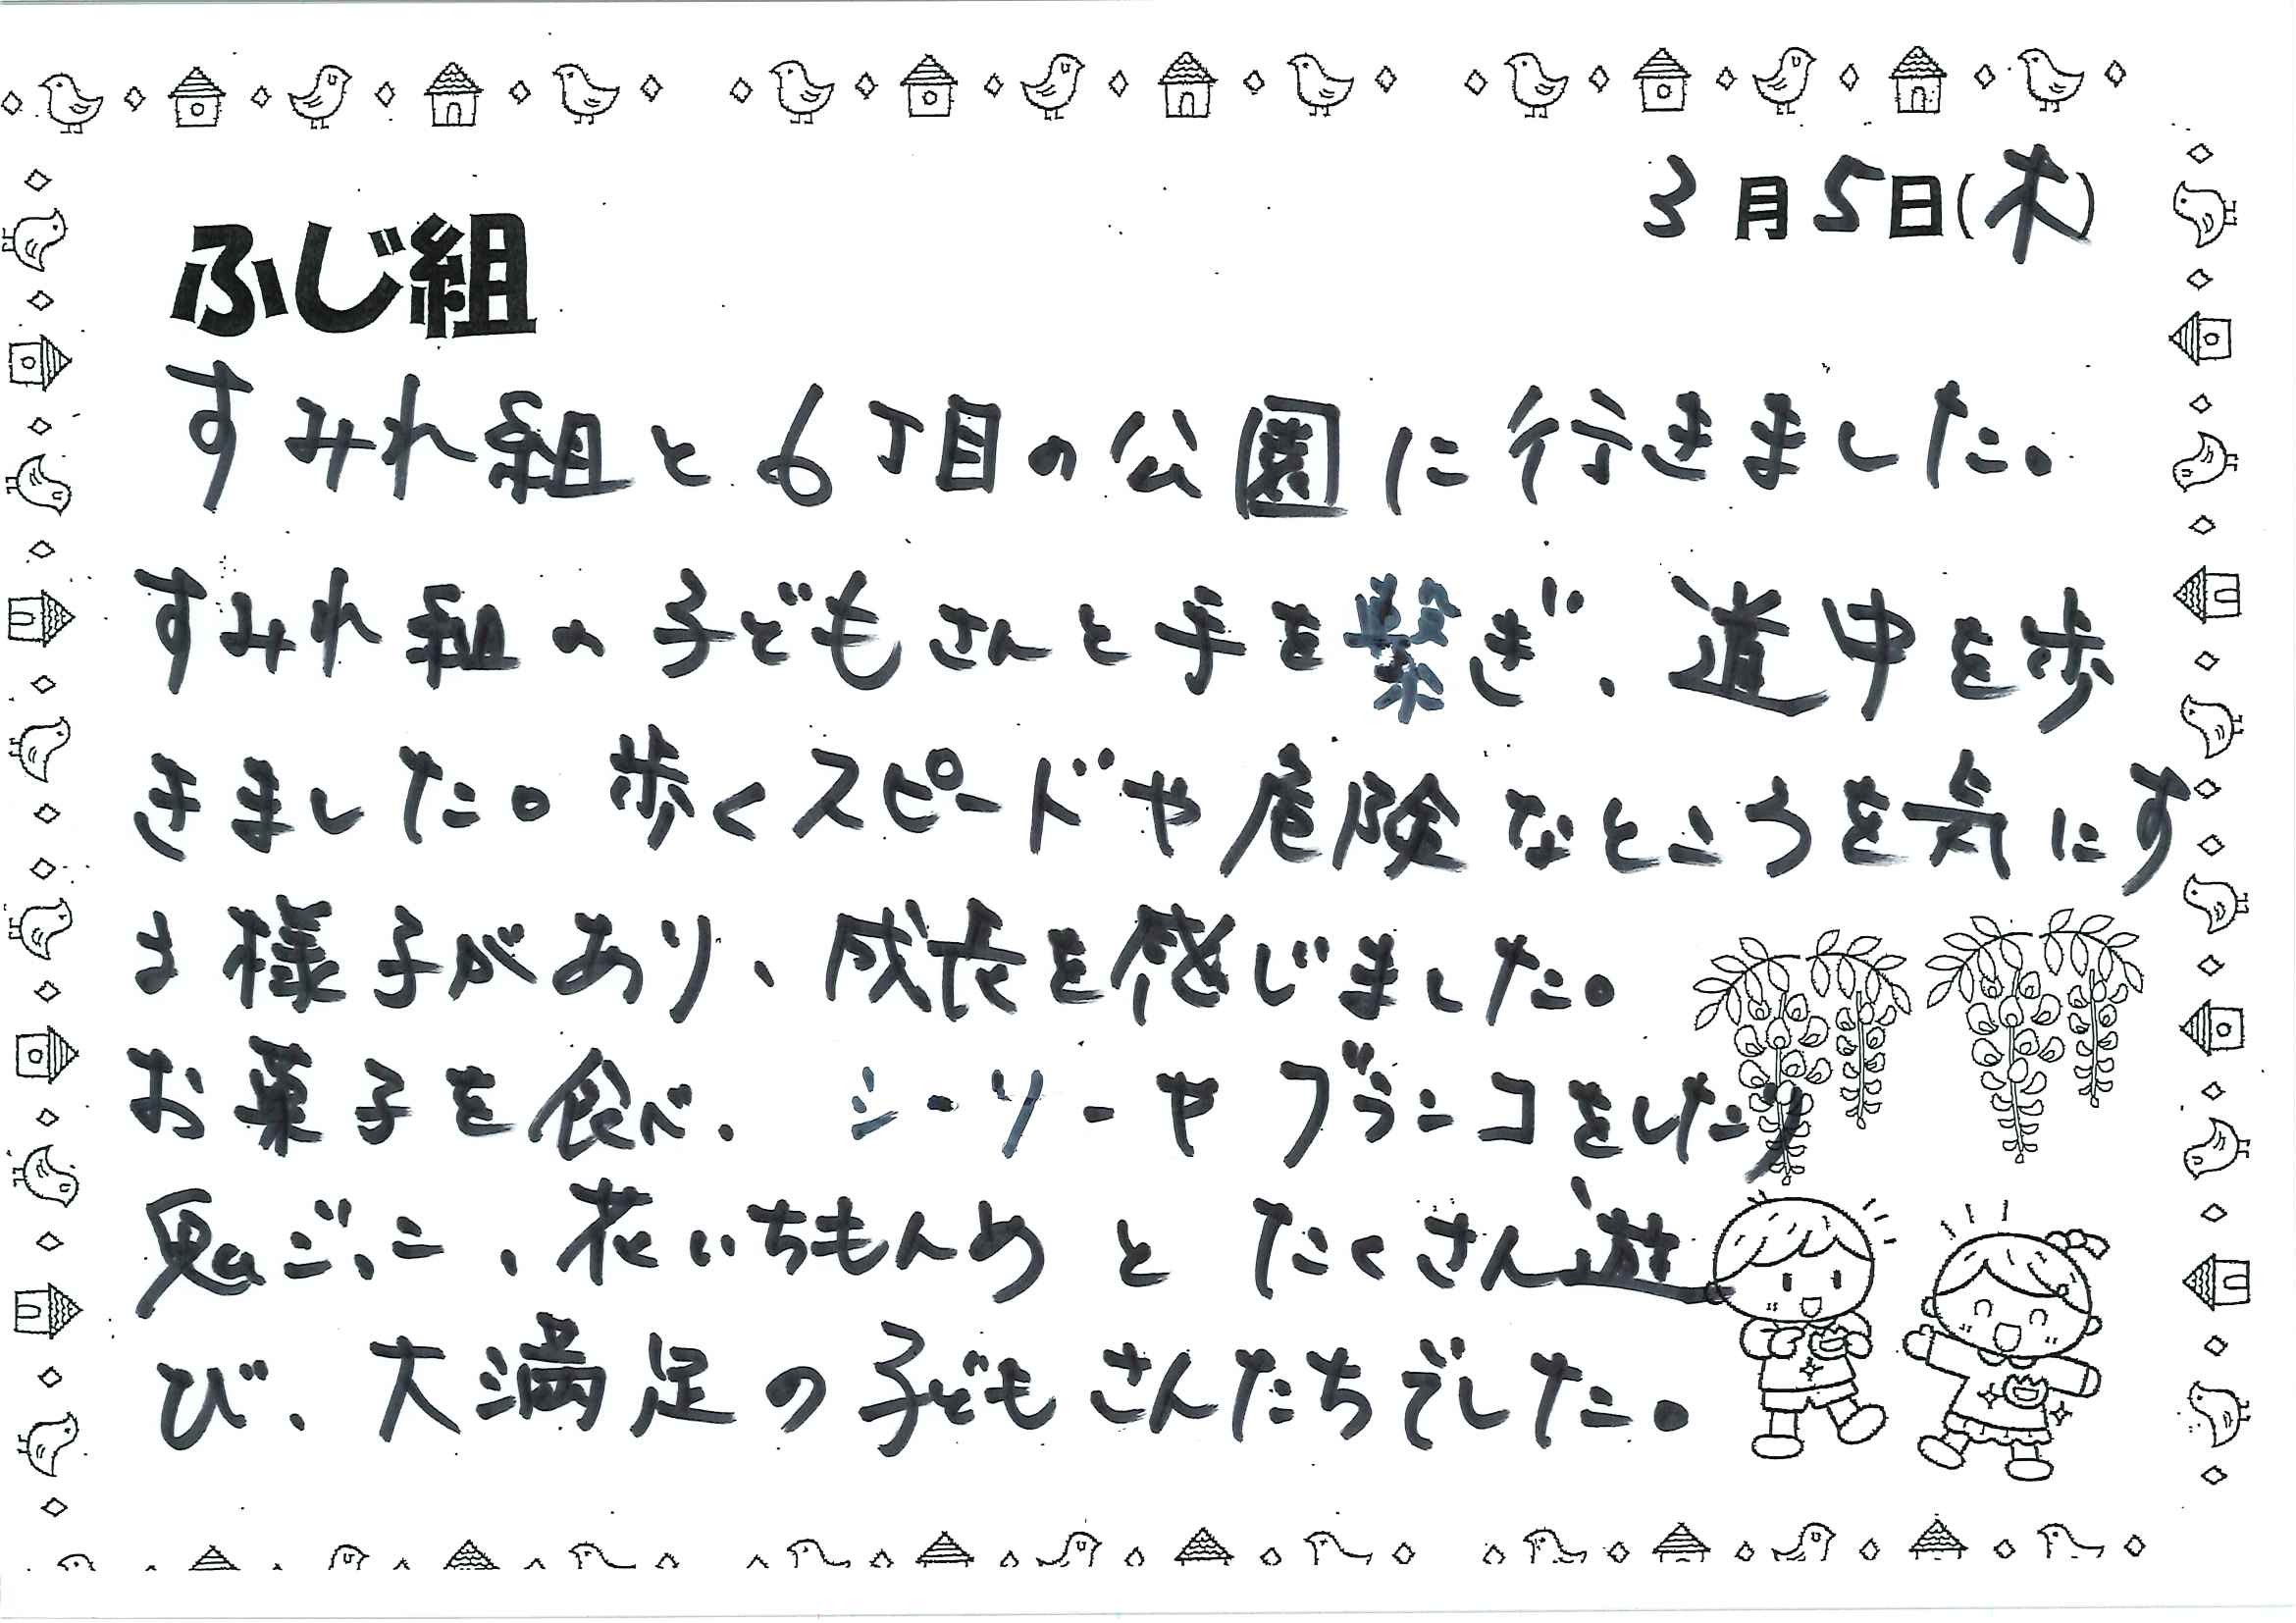 3月5日(木)
ふじ組
すみれ組と6丁目の公園に行きました。
すみれ組の子どもさんと手を繋ぎ、道中を歩
きました。歩くスピードや危険なところを気にす
る様子があり、成長を感じました。
お菓子を食べ、シーソーやブランコをしたり
鬼ごっこ、花いちもんめとたくさん遊
び、大満足の子どもさんたちでした。